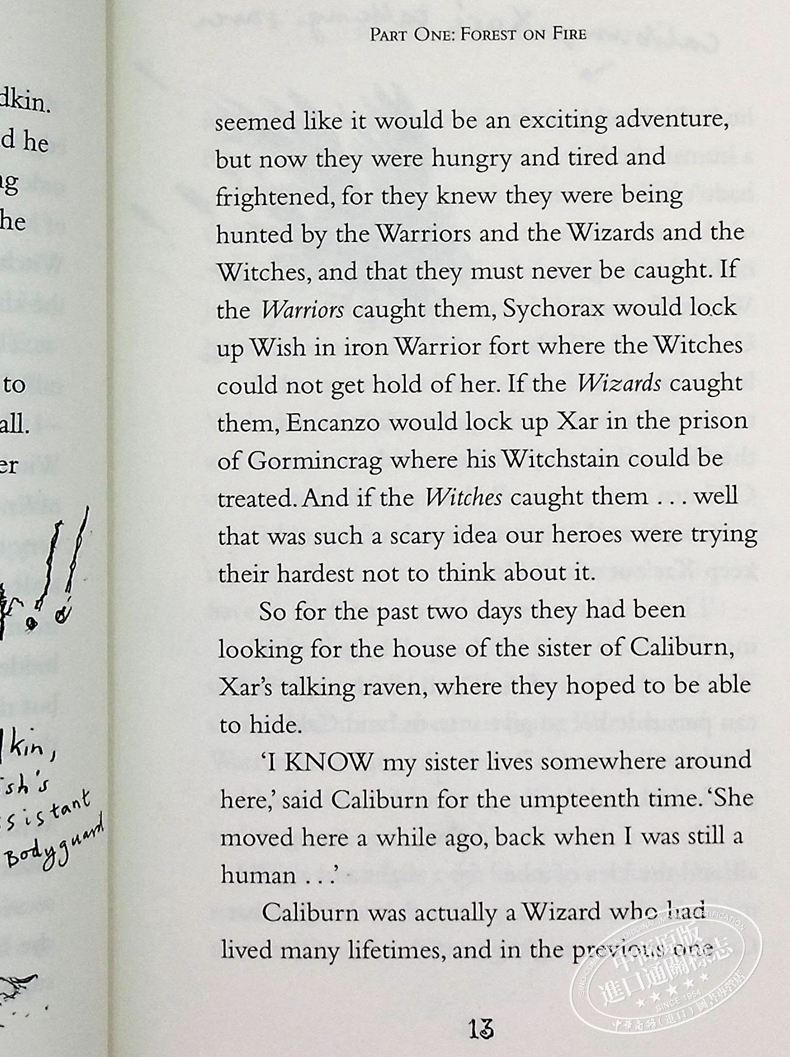 PART ONE: FOREST ON FIRE
dkin.
d he
ng
he
to
all.
er
kin,
ish's
ssistant
Bodyguard
seemed like it would be an exciting adventure,
but now they were hungry and tired and
frightened, for they knew they were being
hunted by the Warriors and the Wizards and the
Witches, and that they must never be caught. If
the Warriors caught them, Sychorax would lock
up Wish in iron Warrior fort where the Witches
could not get hold of her. If the Wizards caught
them, Encanzo would lock up Xar in the prison
of Gormincrag where his Witchstain could be
treated. And if the Witches caught them . . . well
that was such a scary idea our heroes were trying
their hardest not to think about it.
So for the past two days they had been
looking for the house of the sister of Caliburn,
Xar's talking raven, where they hoped to be able
to hide.
‘I KNOW my sister lives somewhere around
here,’ said Caliburn for the umpteenth time. ‘She
moved here a while ago, back when I was still a
human . . .’
Caliburn was actually a Wizard who had
lived many lifetimes, and in the previous one
13
中華商務
進口通關標志
SINCE 1954